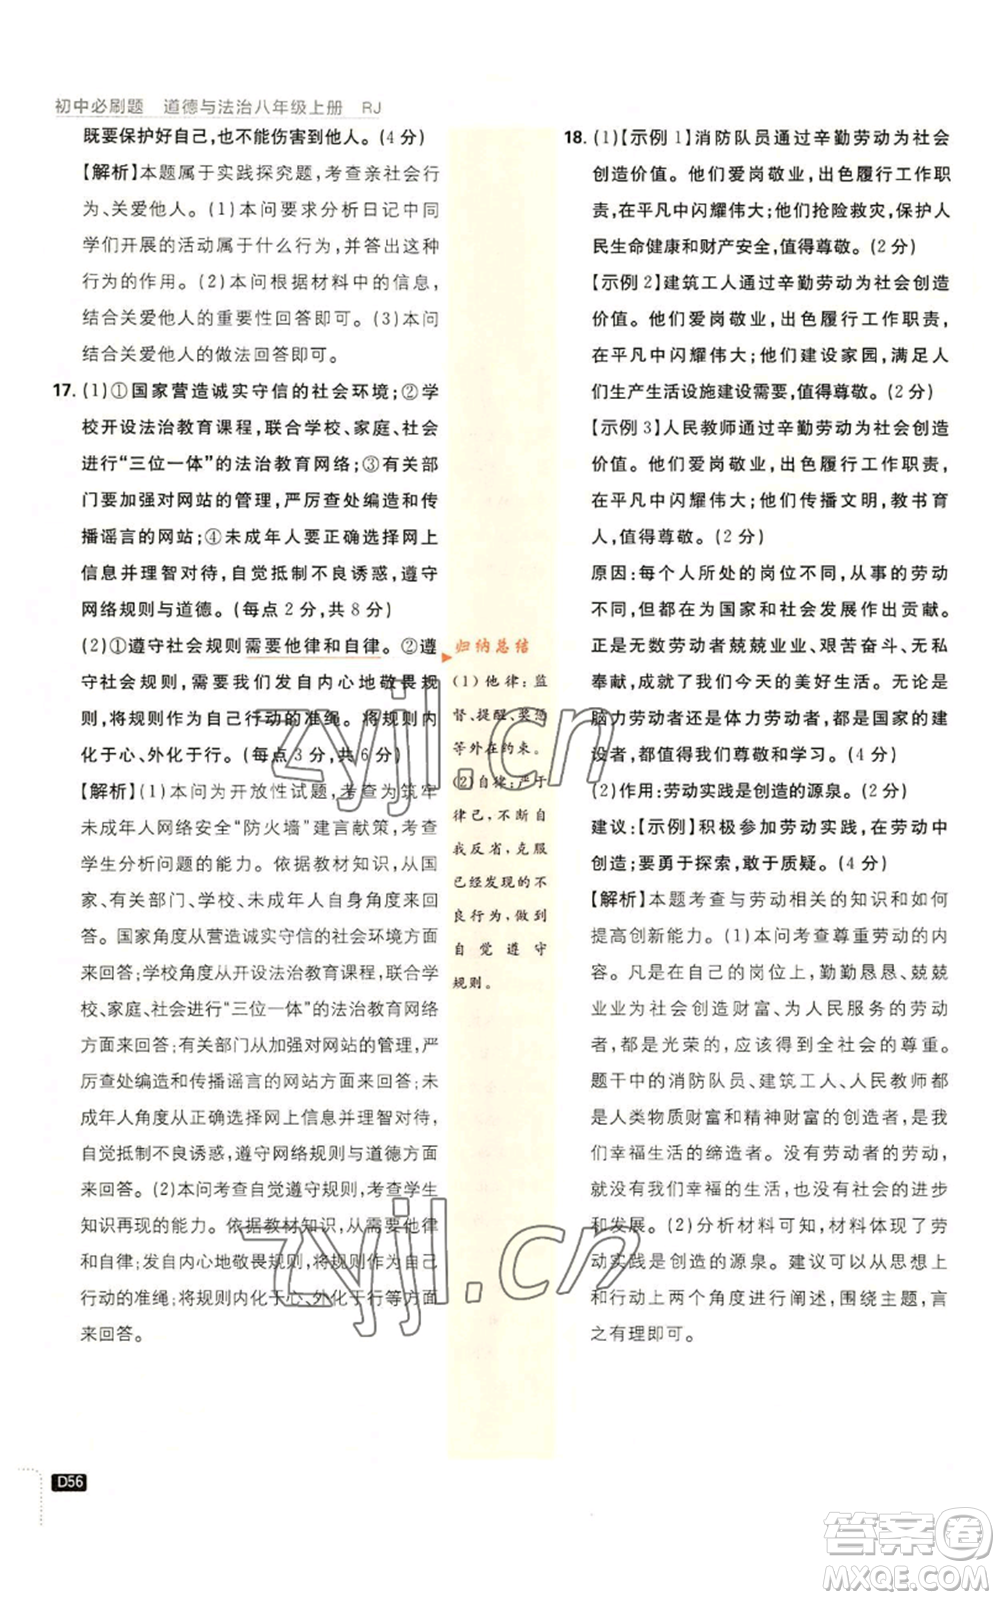 初中必刷题 道德与法治八年级上册 RJ
既要保护好自己,也不能伤害到他人。(4 分)
【解析】本题属于实践探究题,考查亲社会行
为、关爱他人。(1)本问要求分析日记中同
学们开展的活动属于什么行为,并答出这种
行为的作用。(2)本问根据材料中的信息,
结合关爱他人的重要性回答即可。(3)本问
结合关爱他人的做法回答即可。
17. (1)①国家营造诚实守信的社会环境;②学
校开设法治教育课程,联合学校、家庭、社会
进行“三位一体”的法治教育网络;③有关部
门要加强对网站的管理,严厉查处编造和传
播谣言的网站;④未成年人要正确选择网上
信息并理智对待,自觉抵制不良诱惑,遵守
网络规则与道德。(每点 2 分,共 8 分)
(2)①遵守社会规则需要他律和自律。②遵
守社会规则,需要我们发自内心地敬畏规
则,将规则作为自己行动的准绳。将规则内
化于心、外化于行。(每点 3 分,共 6 分)
【解析】(1)本问为开放性试题,考查为筑牢
未成年人网络安全“防火墙”建言献策,考查
学生分析问题的能力。依据教材知识,从国
家、有关部门、学校、未成年人自身角度来回
答。国家角度从营造诚实守信的社会环境方面
来回答;学校角度从开设法治教育课程,联合学
校、家庭、社会进行“三位一体”的法治教育网络
方面来回答;有关部门从加强对网站的管理,严
厉查处编造和传播谣言的网站方面来回答;未
成年人角度从正确选择网上信息并理智对待,
自觉抵制不良诱惑,遵守网络规则与道德方面
来回答。(2)本问考查自觉遵守规则,考查学生
知识再现的能力。依据教材知识,可从需要他律
和自律;发自内心地敬畏规则,将规则作为自己
行动的准绳;将规则内化于心、外化于行等方面
来回答。
归纳总结
(1)他律:监
督、提醒、奖惩
等外在约束。
(2)自律:严于
律己,不断自
我反省,克服
已经发现的不
良行为,做到
自觉遵守
规则。
18. (1)【示例 1】消防队员通过辛勤劳动为社会
创造价值。他们爱岗敬业,出色履行工作职
责,在平凡中闪耀伟大;他们抢险救灾,保护人
民生命健康和财产安全,值得尊敬。(2 分)
【示例 2】建筑工人通过辛勤劳动为社会创造
价值。他们爱岗敬业,出色履行工作职责,
在平凡中闪耀伟大;他们建设家园,满足人
们生产生活设施建设需要,值得尊敬。(2 分)
【示例 3】人民教师通过辛勤劳动为社会创造
价值。他们爱岗敬业,出色履行工作职责,
在平凡中闪耀伟大;他们传播文明,教书育
人,值得尊敬。(2 分)
原因:每个人所处的岗位不同,从事的劳动
不同,但都在为国家和社会发展作出贡献。
正是无数劳动者兢兢业业、艰苦奋斗、无私
奉献,成就了我们今天的美好生活。无论是
脑力劳动者还是体力劳动者,都是国家的建
设者,都值得我们尊敬和学习。(4 分)
(2)作用:劳动实践是创造的源泉。(2 分)
建议:【示例】积极参加劳动实践,在劳动中
创造;要勇于探索,敢于质疑。(4 分)
【解析】本题考查与劳动相关的知识和如何
提高创新能力。(1)本问考查尊重劳动的有
关知识。凡是在自己的岗位上,勤勤恳恳、兢兢
业业为社会创造财富、为人民服务的劳动
者,都是光荣的,应该得到全社会的尊重。
题干中的消防队员、建筑工人、人民教师都
是人类物质财富和精神财富的创造者,是我
们幸福生活的缔造者。没有劳动者的劳动,
就没有我们幸福的生活,也没有社会的进步
和发展。(2)分析材料可知,材料体现了劳
动实践是创造的源泉。建议可以从思想上
和行动上两个角度进行阐述,围绕主题,言
之有理即可。
D56
zyjl.cn
zyjl.cn
答案圈
MXQE.COM